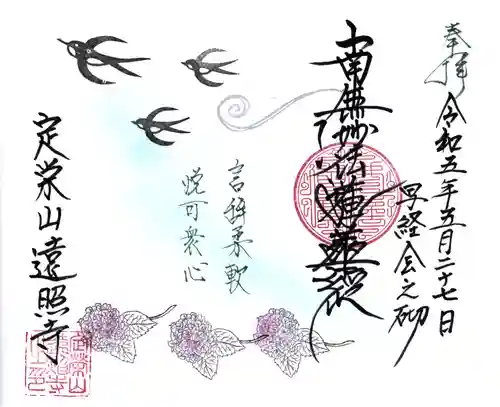 奉拝
令和五年五月二十七日
早経会之砌
南無妙法蓮華経
言辞柔軟
悦可衆心
定栄山遠照寺